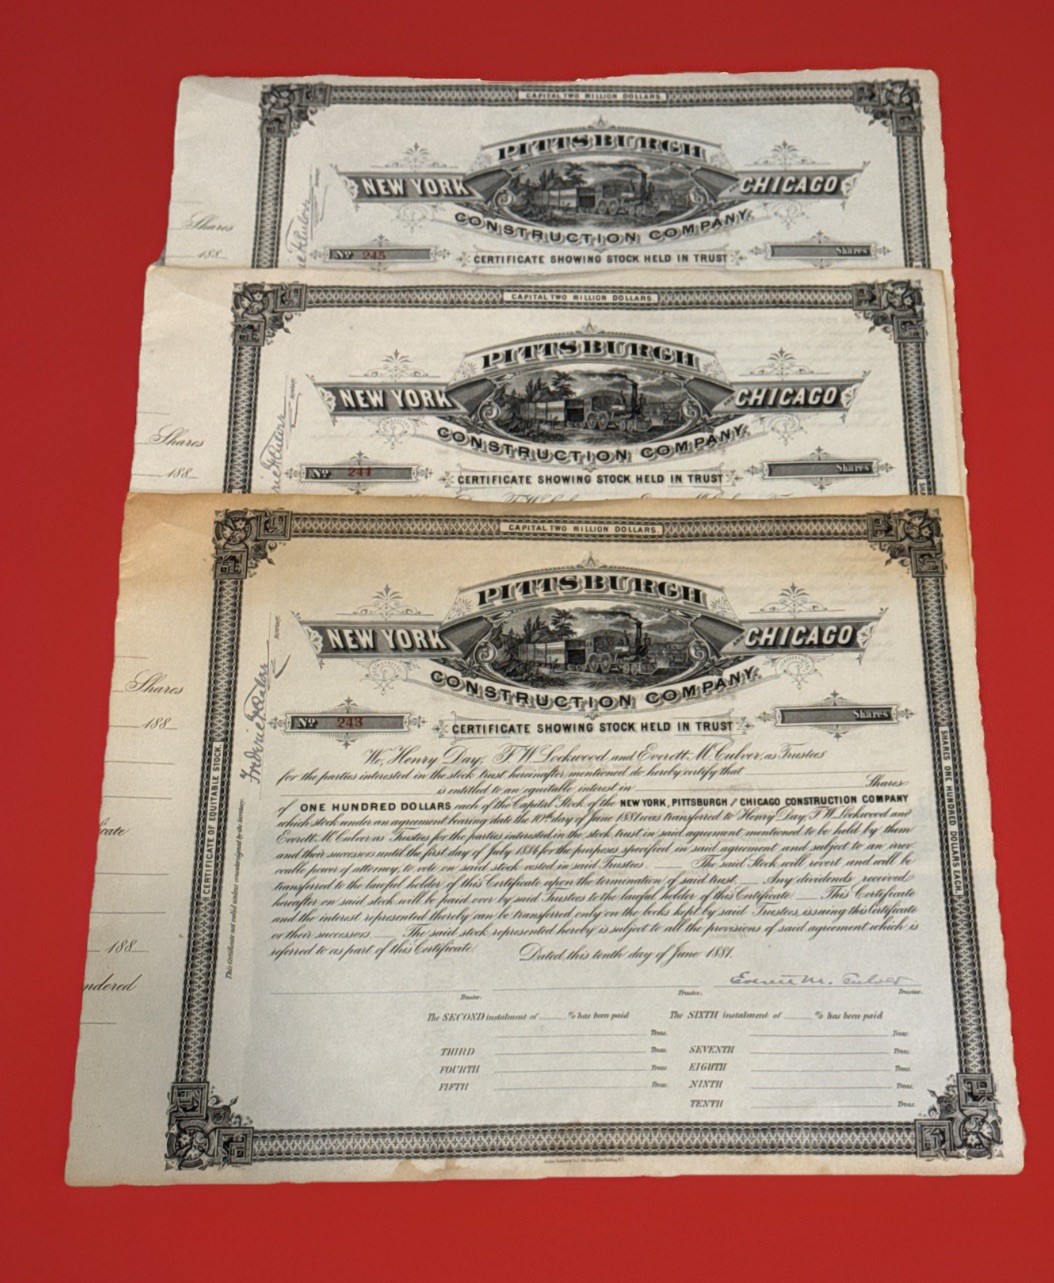 CAPITAL TWO MILLION DOLLARS.
PITTSBURGH
NEW YORK CHICAGO
CONSTRUCTION COMPANY.
Shares
188
No 245 Shares
CERTIFICATE SHOWING STOCK HELD IN TRUST
CAPITAL TWO MILLION DOLLARS.
PITTSBURGH
NEW YORK CHICAGO
CONSTRUCTION COMPANY.
Shares
188
No 244 Shares
CERTIFICATE SHOWING STOCK HELD IN TRUST
CAPITAL TWO MILLION DOLLARS.
PITTSBURGH
NEW YORK CHICAGO
CONSTRUCTION COMPANY.
Shares
188
No 243 Shares
CERTIFICATE SHOWING STOCK HELD IN TRUST
We, Henry Day, F. W. Lockwood and Everett M. Culver, as Trustees
for the parties interested in the stock trust hereinafter mentioned do hereby certify that
is entitled to an equitable interest in Shares
of ONE HUNDRED DOLLARS each of the Capital Stock of the NEW YORK, PITTSBURGH / CHICAGO CONSTRUCTION COMPANY
which stock under an agreement bearing date the 10th day of June 1881 was transferred to Henry Day, F. W. Lockwood and
Everett M. Culver as Trustees for the parties interested in the stock trust in said agreement mentioned to be held by them
and their successors until the first day of July 1884 for the purposes specified in said agreement and subject to an irrev
ocable power of attorney, to vote on said stock vested in said Trustees The said Stock will revert and will be
transferred to the lawful holder of this Certificate upon the termination of said trust. Any dividends received
hereafter on said stock will be paid over by said Trustees to the lawful holder of this Certificate. This Certificate
and the interest represented thereby can be transferred only on the books kept by said Trustees, issuing this Certificate
or their successors The said stock represented hereby is subject to all the provisions of said agreement which is
referred to as part of this Certificate.
Dated this tenth day of June 1881.
Everett M. Culver
Trustee. Trustee. Trustee.
The SECOND instalment of % has been paid The SIXTH instalment of % has been paid
Treas. Treas.
THIRD Treas. SEVENTH Treas.
FOURTH Treas. EIGHTH Treas.
FIFTH Treas. NINTH Treas.
TENTH Treas.
CERTIFICATE OF EQUITABLE STOCK.
This Certificate not valid unless countersigned by the Secretary.
SHARES ONE HUNDRED DOLLARS EACH.
188